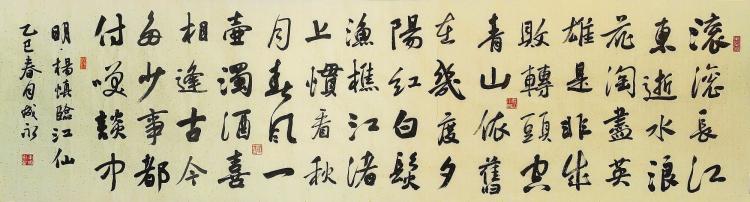 滾滾長江
東逝水浪
花淘盡英
雄是非成
敗轉頭空
青山依舊
在幾度夕
陽紅白髮
漁樵江渚
上慣看秋
月春風一
壺濁酒喜
相逢古今
多少事都
付笑談中
明·楊慎臨江仙
乙巳春月成